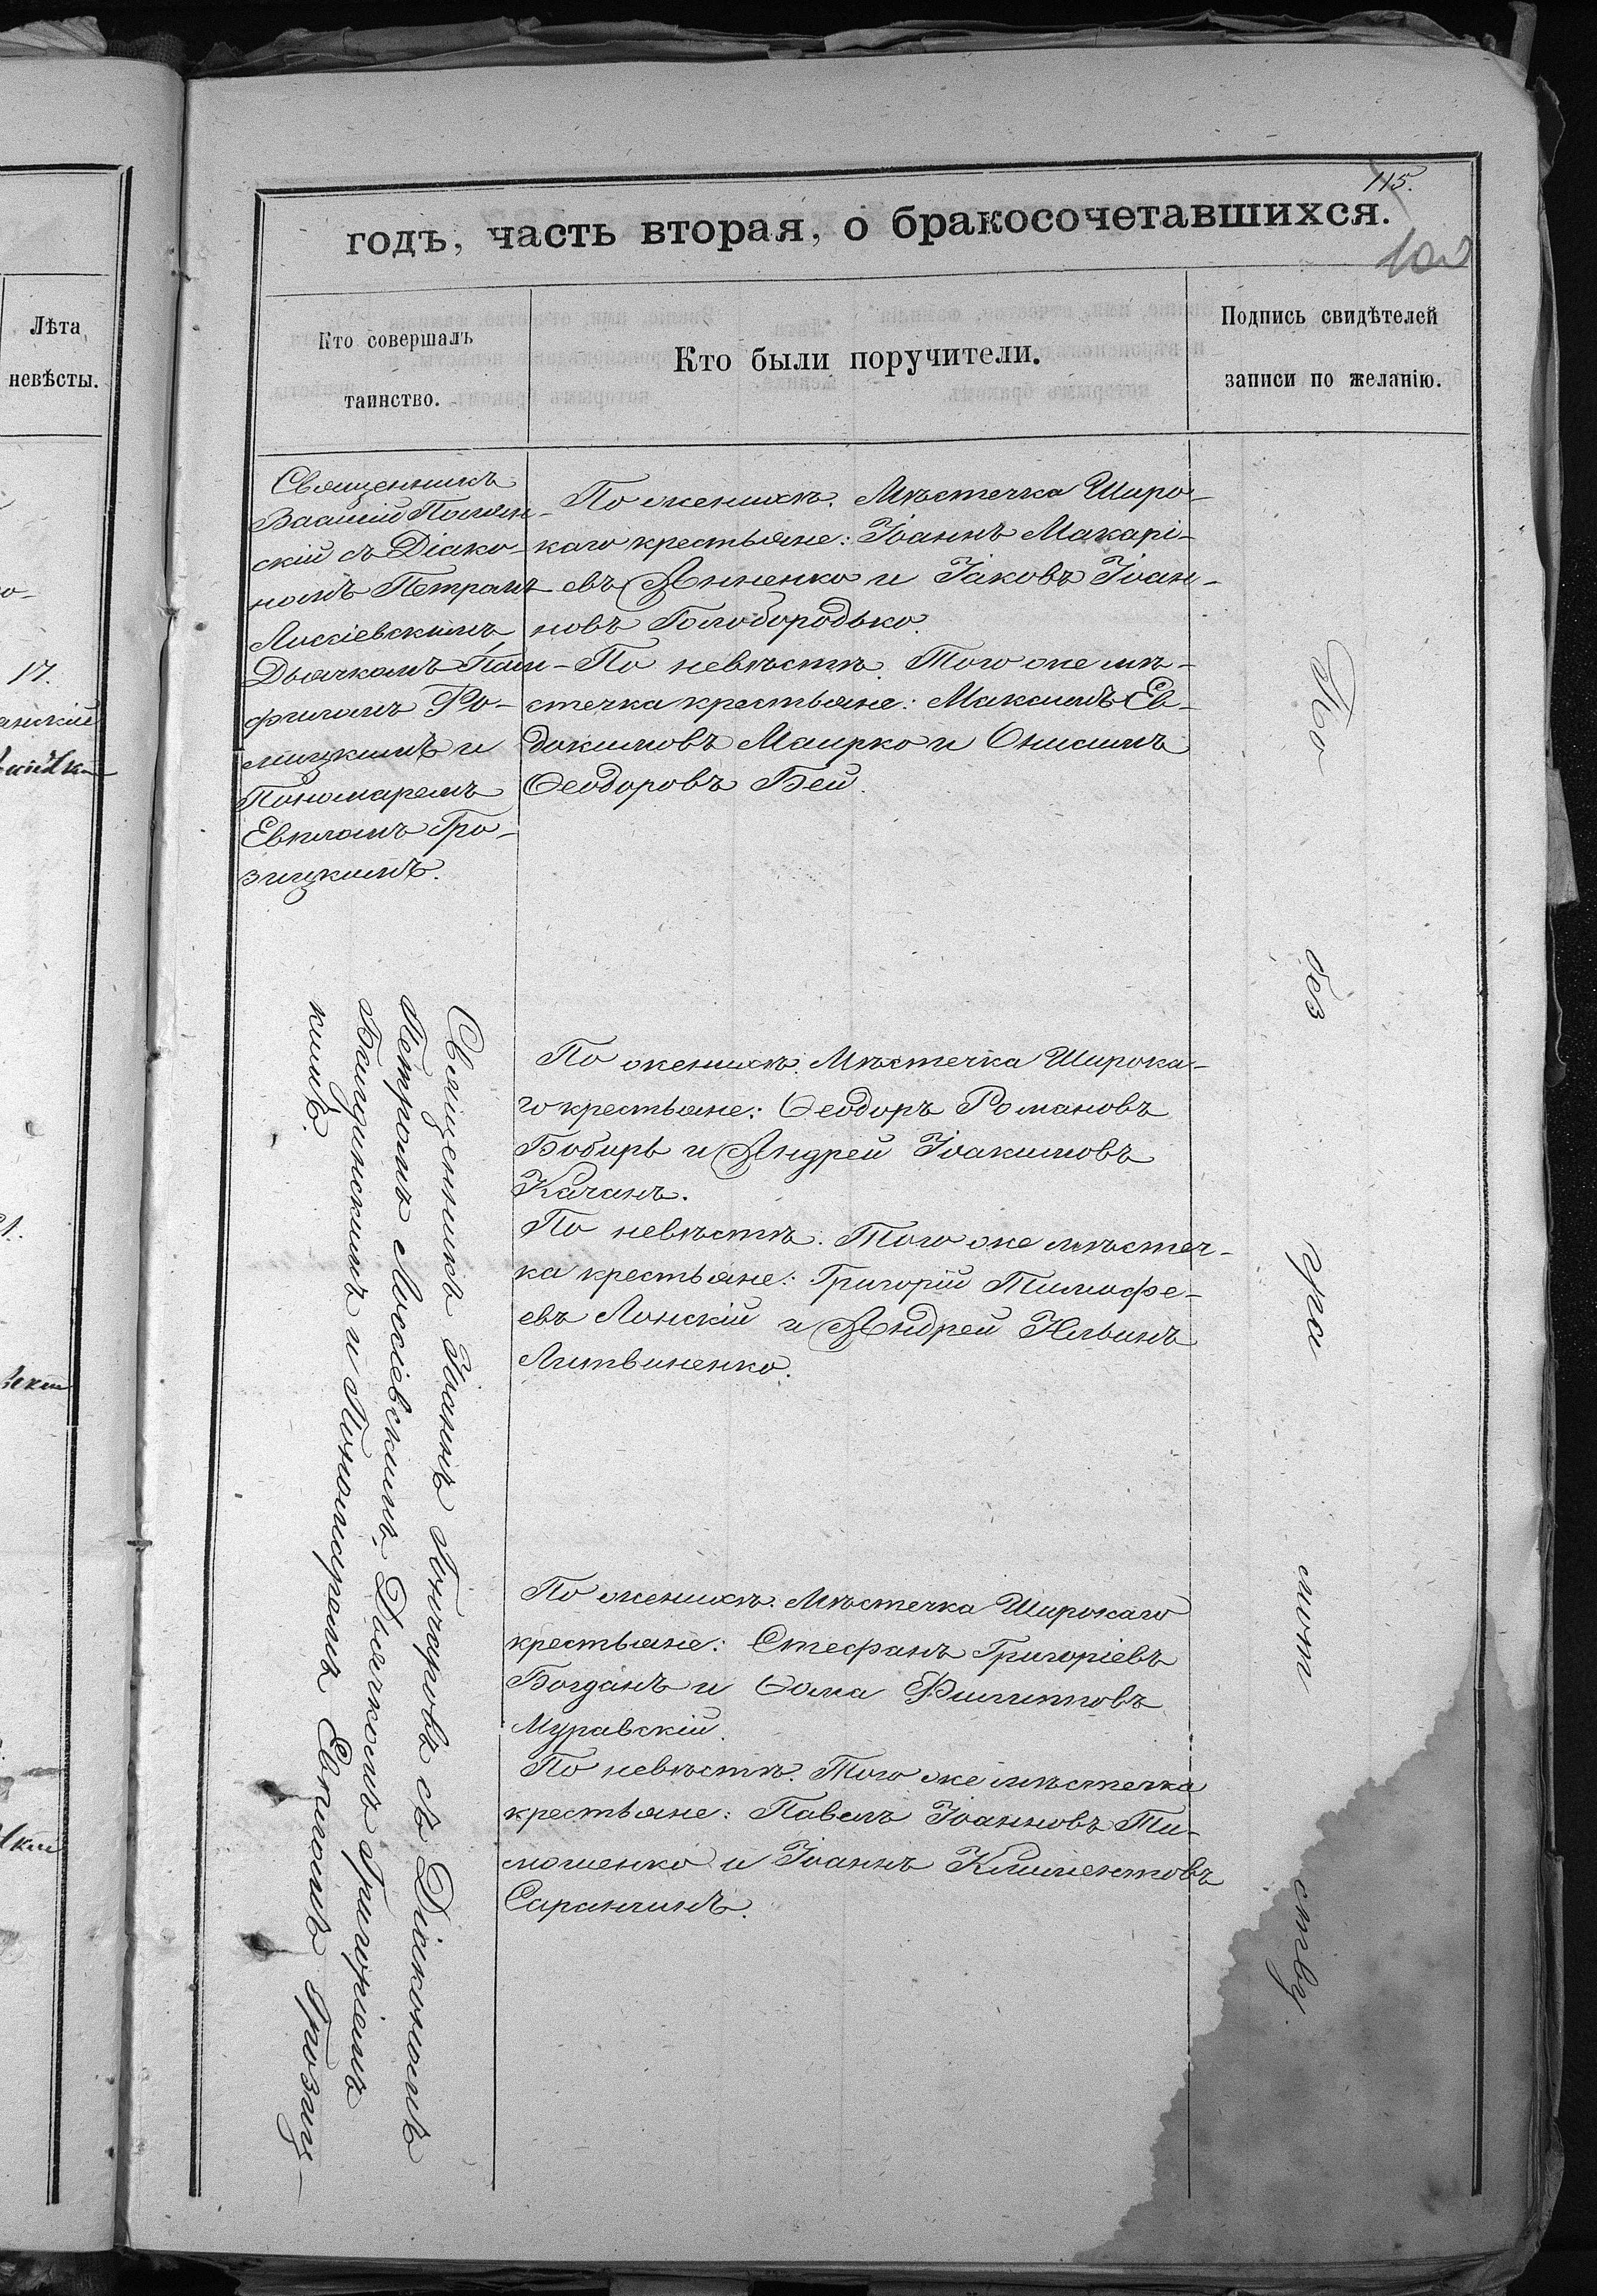 115.
годъ, часть вторая, о бракосочетавшихся.
100
Лѣта
невѣсты.
Кто совершалъ
таинство.
Кто были поручители.
Подпись свидѣтелей
записи по желанію.
17.
Священникъ
Василій Полян-
скій съ Діако-
номъ Петромъ
Лоссіевскимъ
Дьячкомъ Пам-
филомъ Ро-
мицкимъ и
Пономаремъ
Евпломъ Гро-
зицкимъ.
По женихѣ: Мѣстечка Широ-
каго крестьяне: Іоаннъ Макарі-
евъ Яненко и Іаковъ Іоан-
новъ Голобородько.
По невѣстѣ. Того же мѣ-
стечка крестьяне: Максимъ Ев-
докимовъ Маирко и Онисимъ
Ѳеодоровъ Бей.
Священникъ Іоаннъ Гончаровъ съ Діакономъ
Петромъ Лоссіевскимъ, Дьячкомъ Григоріемъ
Бащинскимъ и Пономаремъ Евпломъ Грозиц-
кимъ.
По женихѣ: Мѣстечка Широка-
го крестьяне: Ѳеодоръ Романовъ
Бобирь и Андрей Іоакимовъ
Качанъ.
По невѣстѣ. Того же мѣстеч-
ка крестьяне: Григорій Тимофе-
евъ Лонскій и Андрей Ильинъ
Литвиненко.
По женихѣ: Мѣстечка Широкаго
крестьяне: Стефанъ Григоріевъ
Богданъ и Ѳома Филипповъ
Муравскій.
По невѣстѣ. Того же мѣстечка
крестьяне: Павелъ Іоанновъ Ти-
мошенко и Іоаннъ Климентовъ
Саранчинъ.
По
без
гра
мот
ству.